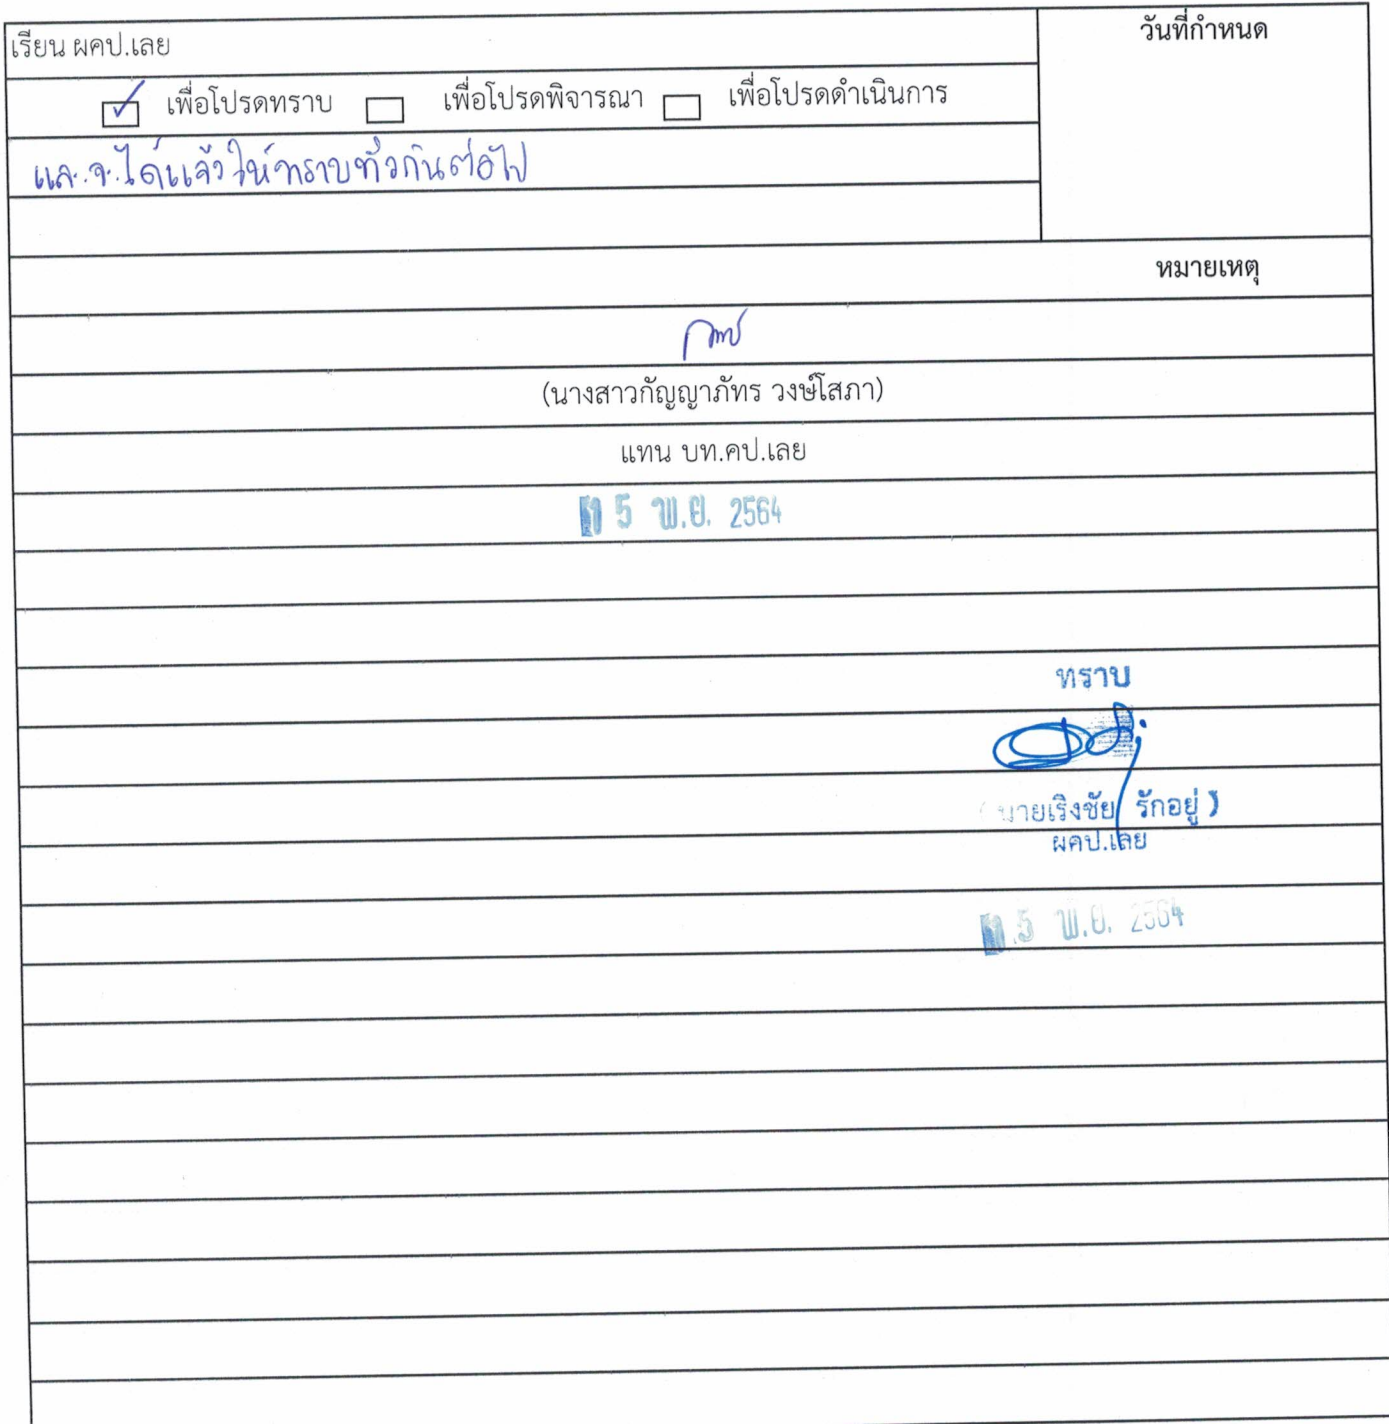 เรียน ผคป.เลย
วันที่กำหนด
เพื่อโปรดทราบ เพื่อโปรดพิจารณา เพื่อโปรดดำเนินการ
และจะได้แจ้งให้ทราบทั่วกันต่อไป
หมายเหตุ
(นางสาวกัญญาภัทร วงษ์โสภา)
แทน บท.คป.เลย
5 พ.ย. 2564
ทราบ
(นายเริงชัย รักอยู่)
ผคป.เลย
5 พ.ย. 2564